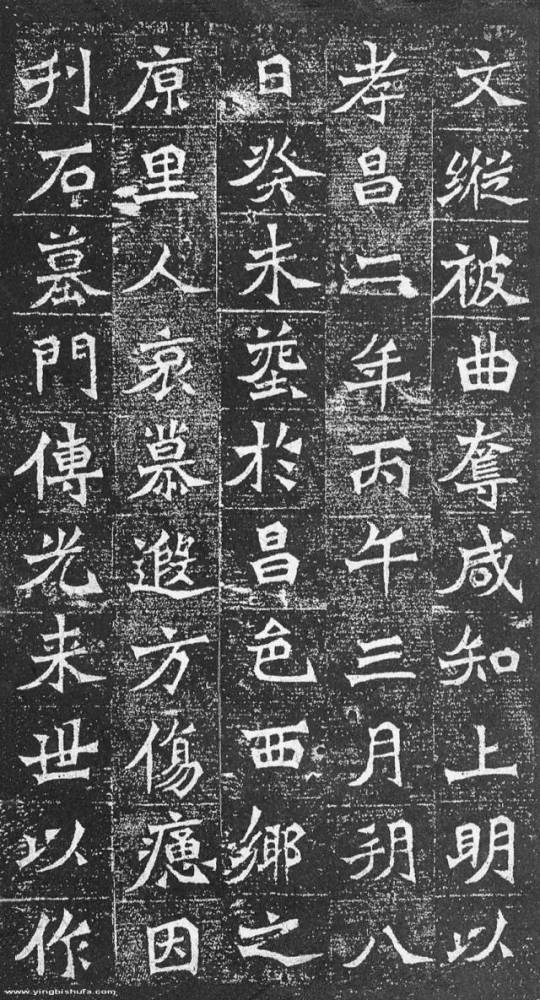 文縱被曲奪咸知上明以
孝昌二年丙午三月朔八
日癸未葬於昌邑西鄉之
原里人哀慕遐方傷因
刋石墓門傳光来世以作
www.yingbishufa.com